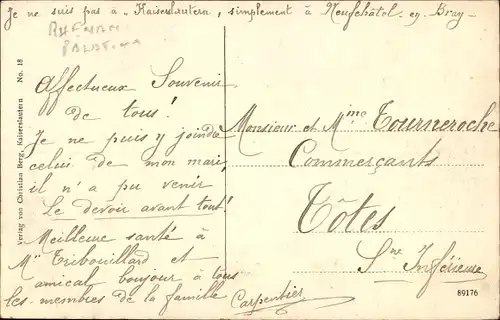 Je ne suis pas à Kaiserslautern, simplement à Neufchâtel-en-Bray
RHENAN
PALATINA
Affectueux Souvenir
de tous!
Je ne puis y joindre
celui de mon mari,
il n'a pu venir
Le devoir avant tout!
Meilleure santé à
Mr Tribouillard et
amical bonjour à tous
les membres de la famille
Carpentier
Monsieur et Mme Tourneroche
Commerçants
Tôtes
Sne Inférieure
89176
Verlag von Christian Berg, Kaiserslautern No. 18